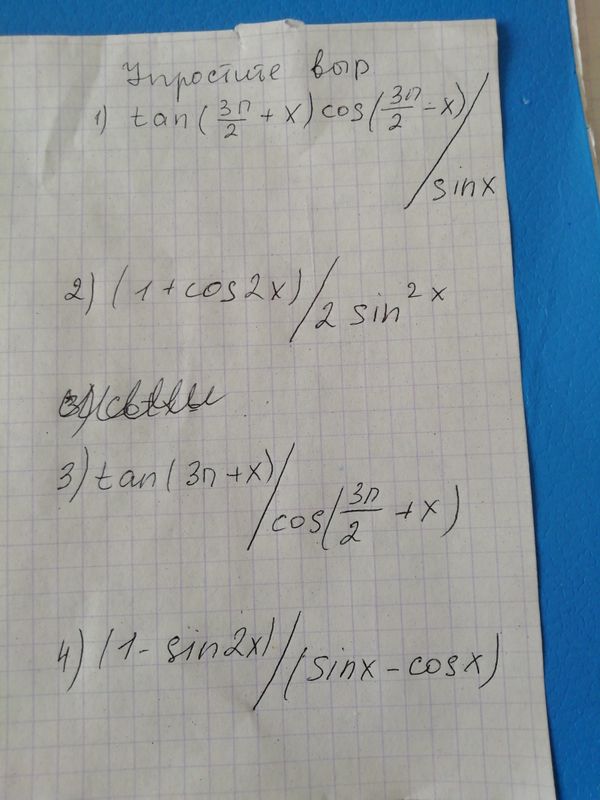 Упростите выр
1) tan(3π/2 + x) cos(3π/2 - x)/sinx
2) (1 + cos2x)/2 sin² x
3) tan(3π + x)/cos(3π/2 + x)
4) (1 - sin2x)/(sinx - cosx)